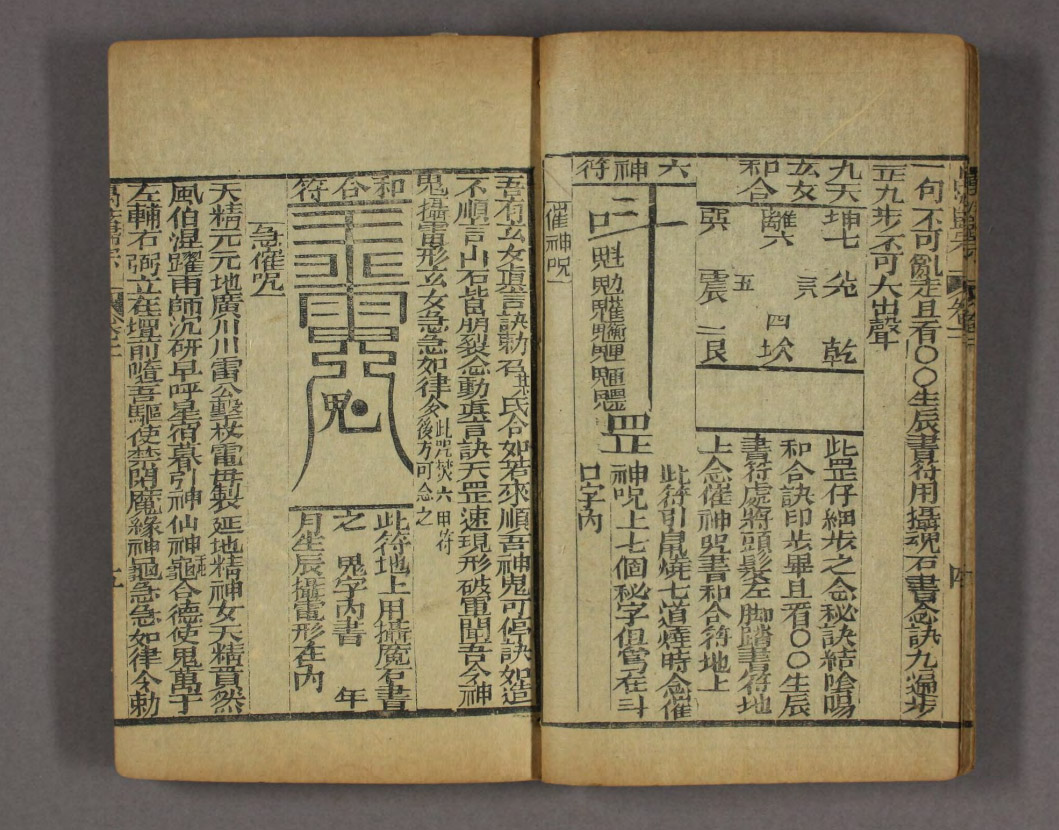 一句不可亂走且看〇〇生辰書符用攝魂石書念訣九遍步
罡九步不可大出聲
九天玄女和合
坤七 兌 乾
離六 三 四坎
巽 五 震 二艮
此罡仔細步之念秘訣結陰陽
和合訣印步畢且看〇〇生辰
書符處將頭髮左脚踏書符地
上念催神咒書和合符地上
六神符
斗
魁
罡
此符引鼠燒七道燒時念催
神呪上七個秘字但寫在斗
口字內
催神呪
吾有玄女真言訣勅召某氏合如若來順吾神鬼可停訣如造
不順言山石皆崩裂念動真言訣天罡速現形破軍聞吾令神
鬼攝電形玄女急急如律令此咒焚六甲符後方可念之
和合符
鬼
此符地上用攝魔石書
之 鬼字內書 年
月生辰攝電形在內
急催呪
天精元元地廣川川雷公擊杖電母製延地精神女天精貫然
風伯混躍雨師沉研早呼星宿暮引神仙神龜合德使鬼萬千
左輔右弼立在壇前隨吾驅使焚閉魔緣神龜急急如律令勅